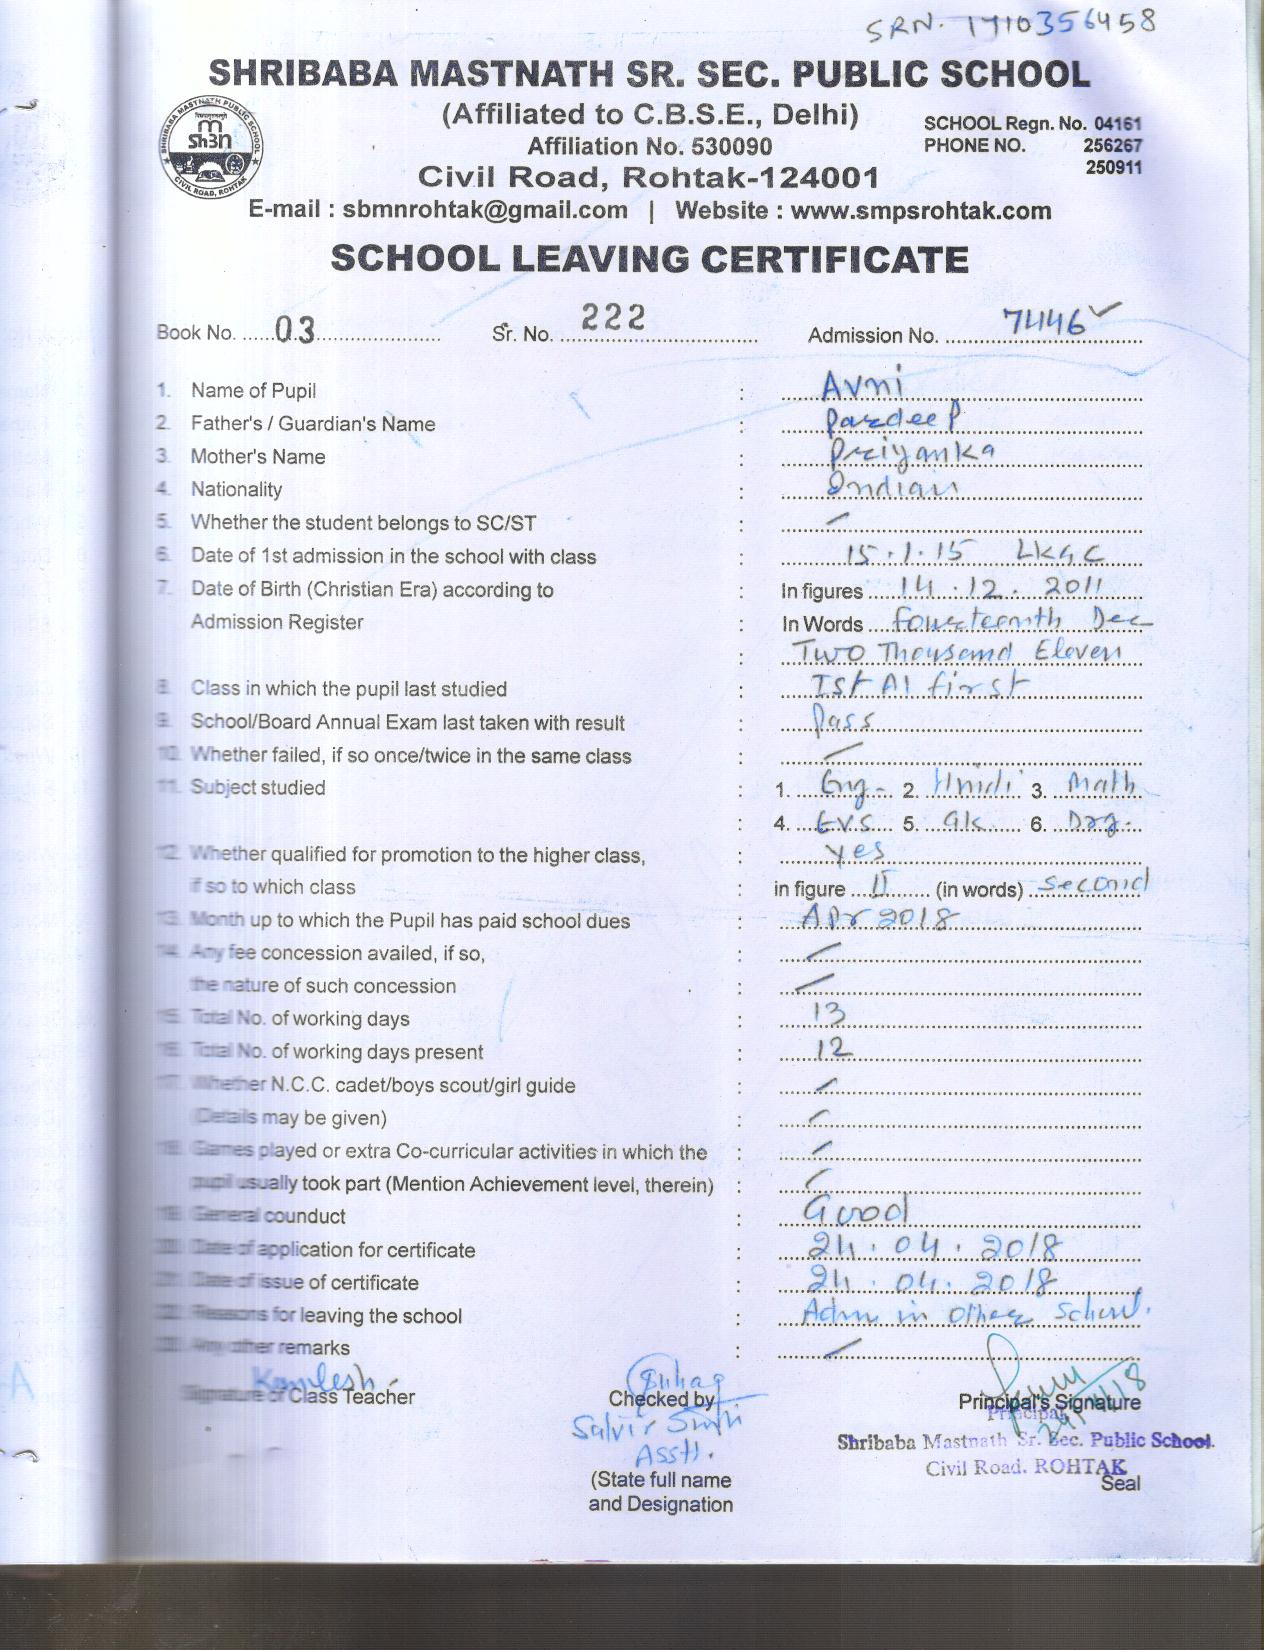 SRN. 1710356458
SHRIBABA MASTNATH SR. SEC. PUBLIC SCHOOL
(Affiliated to C.B.S.E., Delhi)
SCHOOL Regn. No. 04161
Affiliation No. 530090
PHONE NO. 256267
250911
Civil Road, Rohtak-124001
E-mail : sbmnrohtak@gmail.com | Website : www.smpsrohtak.com
SHRIBABA MASTNATH PUBLIC SCHOOL
CIVIL ROAD, ROHTAK
SCHOOL LEAVING CERTIFICATE
Book No. 03 Sr. No. 222 Admission No. 7446
1. Name of Pupil : Avni
2. Father's / Guardian's Name : Pardeep
3. Mother's Name : Priyanka
4. Nationality : Indian
5. Whether the student belongs to SC/ST :
6. Date of 1st admission in the school with class : 15.1.15 LKG C
7. Date of Birth (Christian Era) according to : In figures 14.12.2011
Admission Register : In Words Fourteenth Dec
: Two Thousand Eleven
8. Class in which the pupil last studied : Ist A1 first
9. School/Board Annual Exam last taken with result : Pass
10. Whether failed, if so once/twice in the same class :
11. Subject studied : 1. Eng. 2. Hnidi 3. Math
: 4. EVS 5. GK 6. Drg.
12. Whether qualified for promotion to the higher class, : yes
if so to which class : in figure II (in words) second
13. Month up to which the Pupil has paid school dues : Apr 2018
14. Any fee concession availed, if so, :
the nature of such concession :
15. Total No. of working days : 13
16. Total No. of working days present : 12
17. Whether N.C.C. cadet/boys scout/girl guide :
(Details may be given) :
18. Games played or extra Co-curricular activities in which the :
pupil usually took part (Mention Achievement level, therein) :
19. General counduct : Good
20. Date of application for certificate : 24.04.2018
21. Date of issue of certificate : 24.04.2018
22. Reasons for leaving the school : Adm in other School.
23. Any other remarks :
Kamlesh
Signature of Class Teacher Checked by Principal's Signature
Principal
Asstt.
Shribaba Mastnath Sr. Sec. Public School.
Civil Road. ROHTAK
(State full name Seal
and Designation